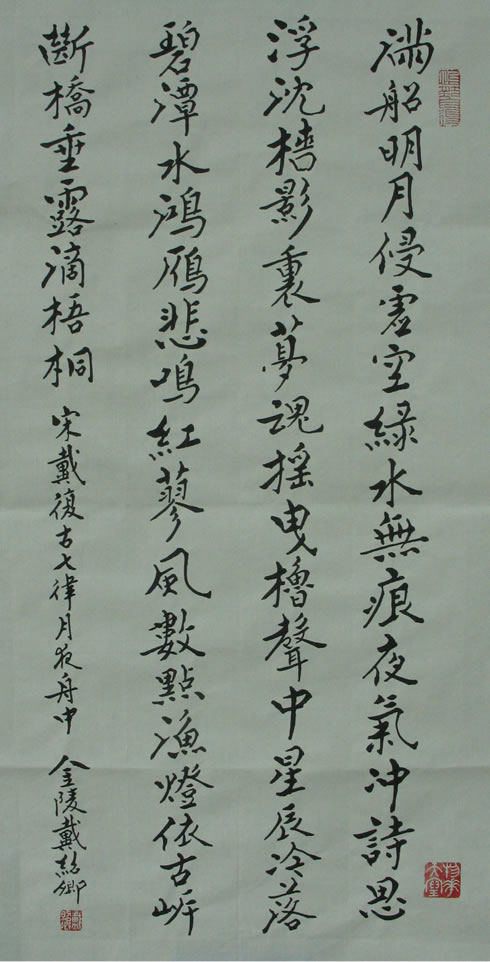 滿船明月侵虛空綠水無痕夜氣冲詩思
浮沈檣影裏夢魂搖曳櫓聲中星辰冷落
碧潭水鴻雁悲鳴紅蓼風數點漁燈依古岍
斷橋垂露滴梧桐
宋戴復古七律月夜舟中
金陵戴紹卿